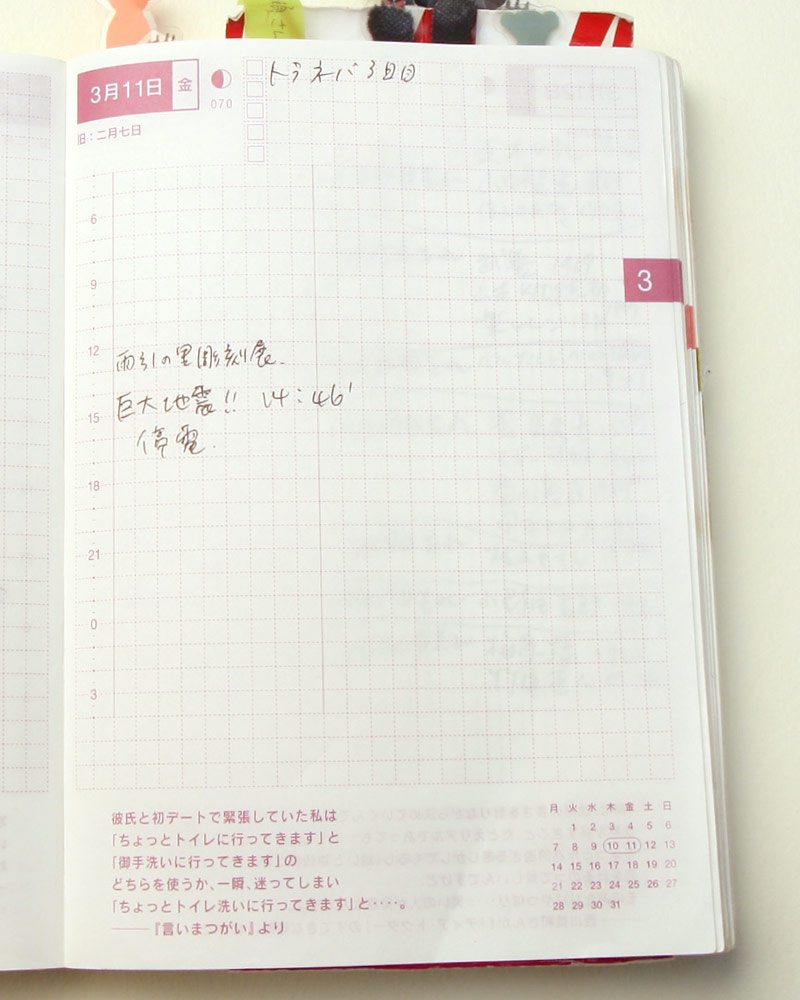 3月11日 金
070
旧：二月七日
トラネパ 3日目
6
9
3
12
雨引の里彫刻展.
巨大地震!! 14:46'
15
停電.
18
21
0
3
彼氏と初デートで緊張していた私は
「ちょっとトイレに行ってきます」と
「御手洗いに行ってきます」の
どちらを使うか、一瞬、迷ってしまい
「ちょっとトイレ洗いに行ってきます」と・・・・。
──『言いまつがい』より
月 火 水 木 金 土 日
1 2 3 4 5 6
7 8 9 10 11 12 13
14 15 16 17 18 19 20
21 22 23 24 25 26 27
28 29 30 31